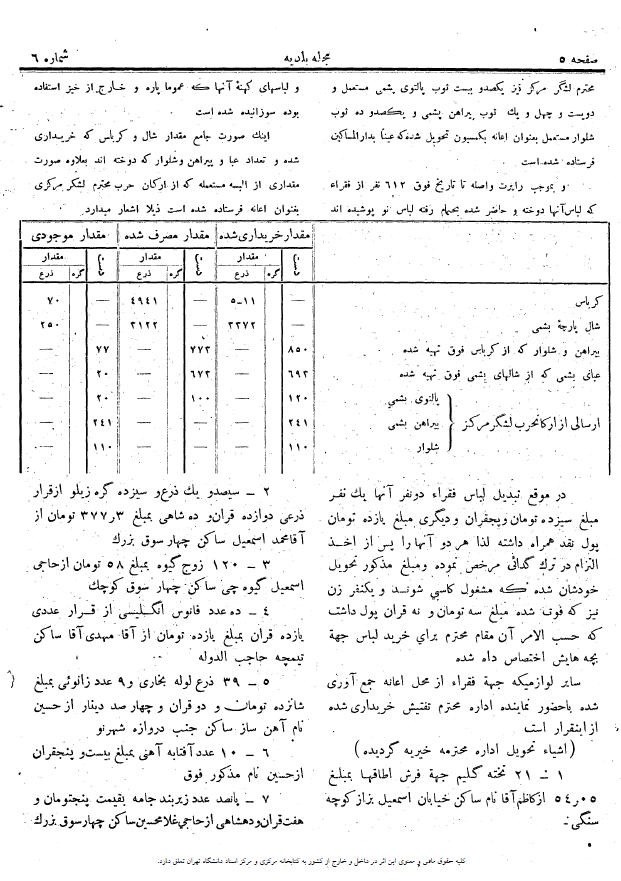 صفحه ۵
مجله بلدیه
شماره ۶
محترم لشگر مرکز نیز یکصدو بیست ثوب پالتوی پشمی مستعمل و
دویست و چهل و یك ثوب پیراهن پشمی و یکصدو ده ثوب
شلوار مستعمل بعنوان اعانه بکمسیون تحویل شده که عیناً بدارالمساکین
فرستاده شده است
و بموجب راپرت واصله تا تاریخ فوق ۶۱۲ نفر از فقراء
که لباس آنها دوخته و حاضر شده بحمام رفته لباس نو پوشیده اند
و لباسهای کهنهٔ آنها که عموما پاره و خارج از حیز استفاده
بوده سوزانیده شده است
اینك صورت جامع مقدار شال و کرباس که خریداری
شده و تعداد عبا و پیراهن وشلوار که دوخته اند بعلاوه صورت
مقداری از البسه مستعمله که از ارکان حرب محترم لشگر مرکزی
بعنوان اعانه فرستاده شده است ذیلا اشعار میدارد
مقدار خریداری شده مقدار مصرف شده مقدار موجودی
مقدار مقدار مقدار
گره ذرع گره ذرع گره ذرع
کرباس — ۵۰۱۱ — ۴۹۴۱ — ۷۰
شال پارچهٔ پشمی — ۲۳۷۲ — ۲۱۲۲ — ۲۵۰
پیراهن و شلوار که از کرباس فوق تهیه شده ۸۵۰ — ۷۷۳ — ۷۷ —
عبای پشمی که از شالهای پشمی فوق تهیه شده ۶۹۲ — ۶۷۲ — ۲۰ —
ارسالی از ارکانحرب لشگر مرکز
پالتوی پشمی ۱۲۰ — ۱۰۰ — ۲۰ —
پیراهن پشمی ۲۴۱ — — — ۲۴۱ —
شلوار ۱۱۰ — — — ۱۱۰ —
در موقع تبدیل لباس فقراء دونفر آنها یك نفر
مبلغ سیزده تومان و پنجقران و دیگری مبلغ یازده تومان
پول نقد همراه داشته لذا هر دو آنها را پس از اخذ
التزام در ترك گدائی مرخص نموده ومبلغ مذکور تحویل
خودشان شده که مشغول کاسبی شوند و یکنفر زن
نیز که فوت شده مبلغ سه تومان و نه قران پول داشت
که حسب الامر آن مقام محترم برای خرید لباس جهة
بچه هایش اختصاص داه شده
سایر لوازمیکه جهة فقراء از محل اعانه جمع آوری
شده باحضور نماینده اداره محترم تفتیش خریداری شده
از اینقرار است
(اشیاء تحویل اداره محترمه خیریه گردیده)
۱ – ۲۱ تخته گلیم جهة فرش اطاقها بمبلغ
۵۴٫۰۵ از کاظم آقا نام ساکن خیابان اسمعیل بزاز کوچه
سنگی :
۲ – سیصدو یك ذرع و سیزده گره زیلو از قرار
ذرعی دوازده قران و ده شاهی بمبلغ ۳۷۷٫۳ تومان از
آقامحمد اسمعیل ساکن چهار سوق بزرك
۳ – ۱۲۰ زوج گیوه بمبلغ ۵۸ تومان ازحاجی
اسمعیل گیوه چی ساکن چهار سوق کوچك
۴ – ده عدد فانوس انگلیسی از قرار عددی
یازده قران بمبلغ یازده تومان از آقا مهدی آقا ساکن
تیمچه حاجب الدوله
۵ – ۳۹ ذرع لوله بخاری و ۹ عدد زانوئی بمبلغ
شانزده تومان و دو قران و چهار صد دینار از حسین
نام آهن ساز ساکن جنب دروازه شهرنو
۶ – ۱۰ عدد آفتابه آهنی بمبلغ بیست و پنجقران
ازحسین نام مذکور فوق
۷ – پانصد عدد زیربند جامه بقیمت پنجتومان و
هفت قران و دهشاهی از حاجی غلامحسین ساکن چهار سوق بزرك
کلیه حقوق مادی و معنوی این اثر در داخل و خارج از کشور به کتابخانه مرکزی و مرکز اسناد دانشگاه تهران تعلق دارد.